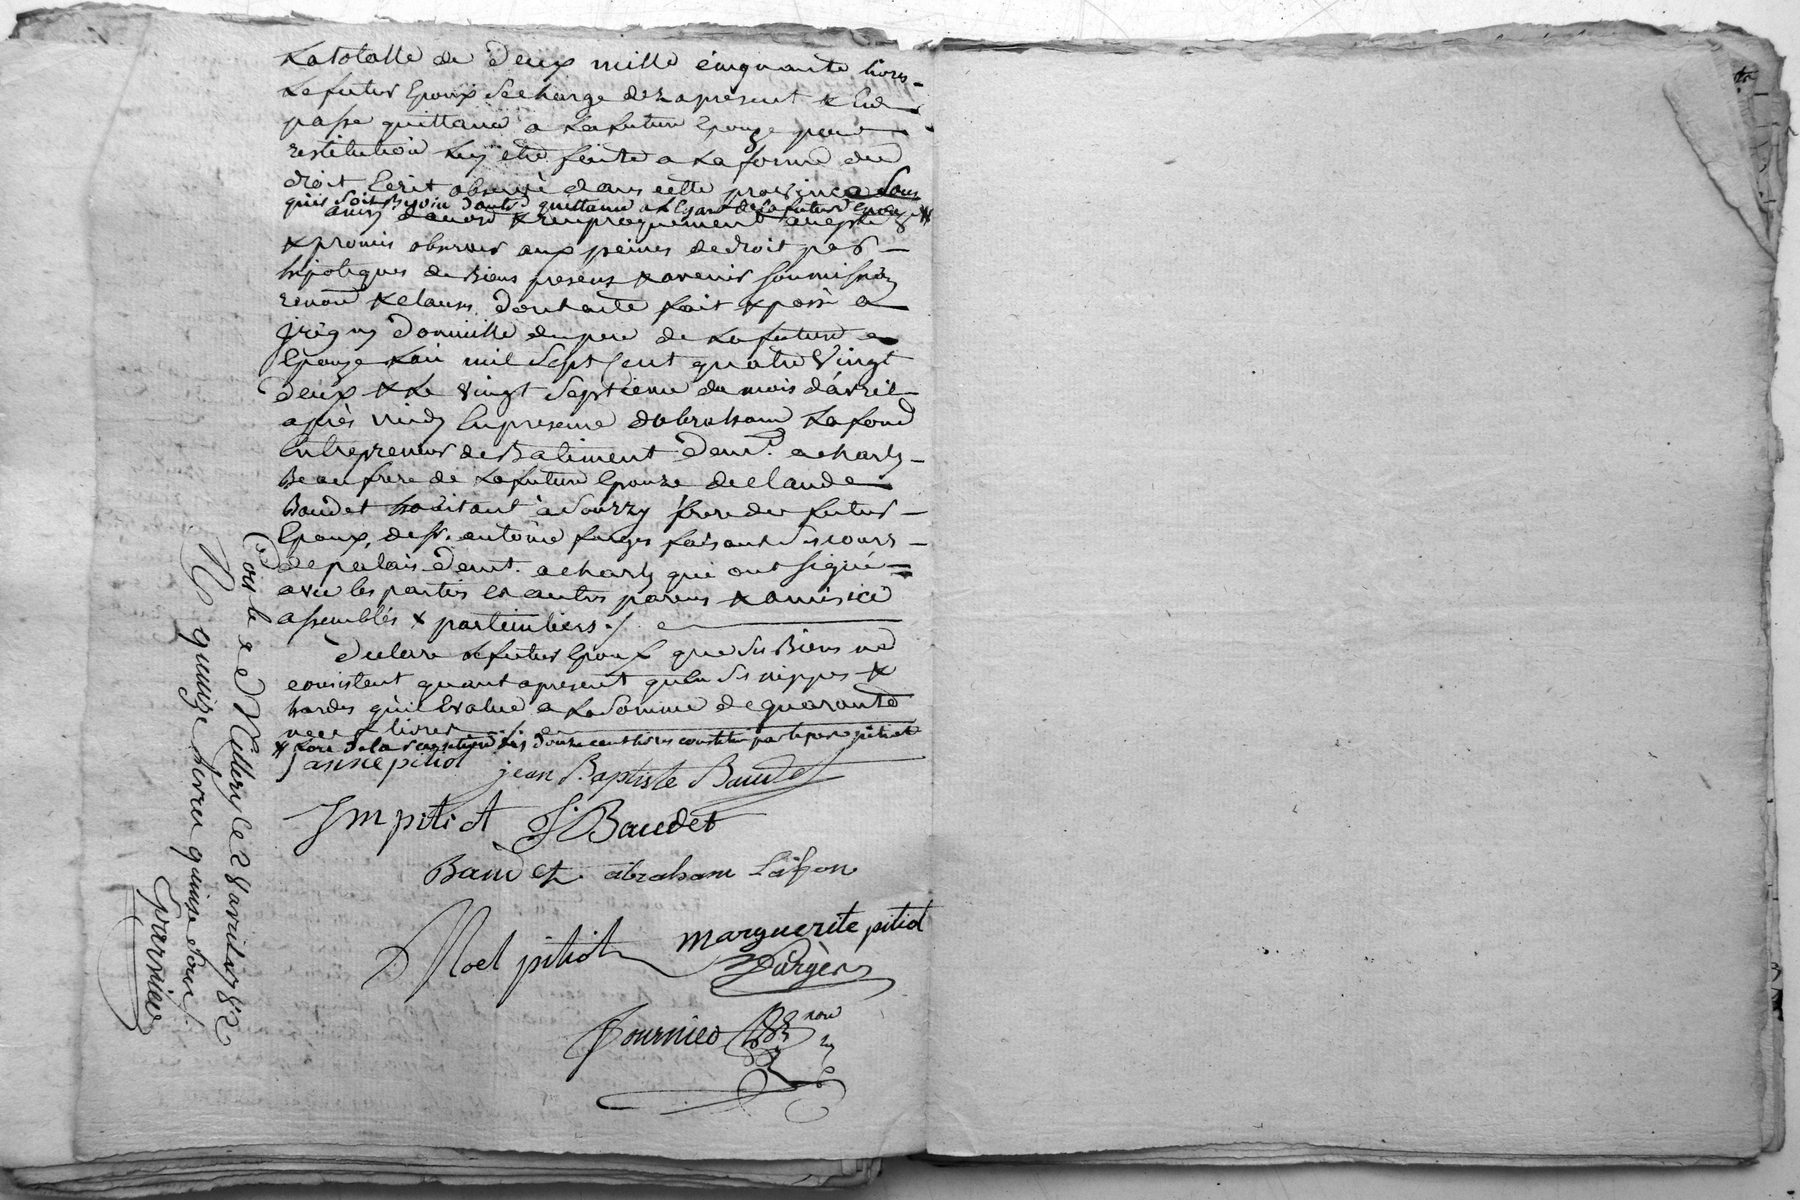 La totalle de deux mille cinquante livres
Le futur Epoux se charge dez a present & En
passe quittance a La future Epouze pour
restitution Luy etre faite a La forme du
droit Ecrit observé dans cette province Sans
qu'il soit Besoin d'autre quittance a L'egard de La future Epouze *
ainsi d'accord & reciproquement accepté
& promis observer aux peines de droit par
hipoteques de Biens presens & avenir soumission
renon & clauses dont acte fait & passé a
jrigny domicille du pere de La future
Epouze L'an mil sept cent quatre vingt
deux & Le vingt septieme du mois d'avril
après midy En presence d'abraham Lafond
Entrepreneur de Batiment demt. a charly
Beau frere de La future Epouze de claude
Baudet habitant à Sourzy frere du futur
Epoux, de sr. antoine farges faisant ses cours
de palais demt. a charly qui ont signé
avec les parties Et autres parens & amis ici
assemblés & particuliers ./.
Declare Le futur Epoux que ses Biens ne
consistent quant a present qu'en ses nippes &
hardes qu'il Evalue a La somme de quarante
neuf livres ./.
* Lors de la reception des douze cent livres constitués par le pere pitiot
anne pitiot jean Baptiste Baudet
JM pitiot J Baudet
Baudet abraham Lafon
Noel pitiot marguerite pitiot
Farges
Fournier nore
Colé a Millery ce 28 avril 1782
R quinze livres quinze sous ./.
Fournier